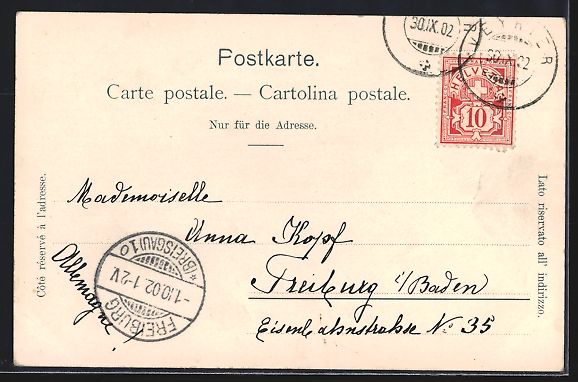 30.IX.02
30.IX.02
Postkarte.
HELVETIA
10
Carte postale. — Cartolina postale.
Nur für die Adresse.
Côté réservé à l'adresse.
Lato riservato all' indirizzo.
Mademoiselle
Anna Kopf
Freiburg i/Baden
Eisenbahnstrahse No 35
Allemagne
FREIBURG
-1.10.02 1-2V
*(BREISGAU)1o